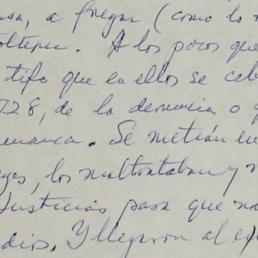 sa, a fregar (como lo
soltera. A los pocos que
tifo que en ellos se ceb
728, de la denuncia o
manca. Se metían en
los maltrataban y
Justicias para que
dios. Y llegaron al